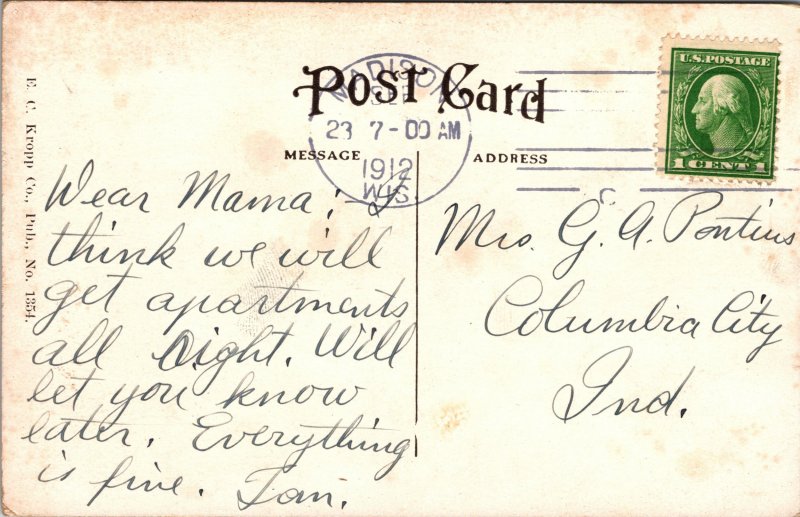 POST CARD
MADISON
SEP
23 7-00 AM
1912
WIS.
U.S. POSTAGE
1 CENT 1
MESSAGE
ADDRESS
E. C. Kropp Co., Pub., No. 1354.
Dear Mama:- I
think we will
get apartments
all right. Will
let you know
later. Everything
is fine. Ian.
Mrs. G. A. Pontius
Columbia City
Ind.